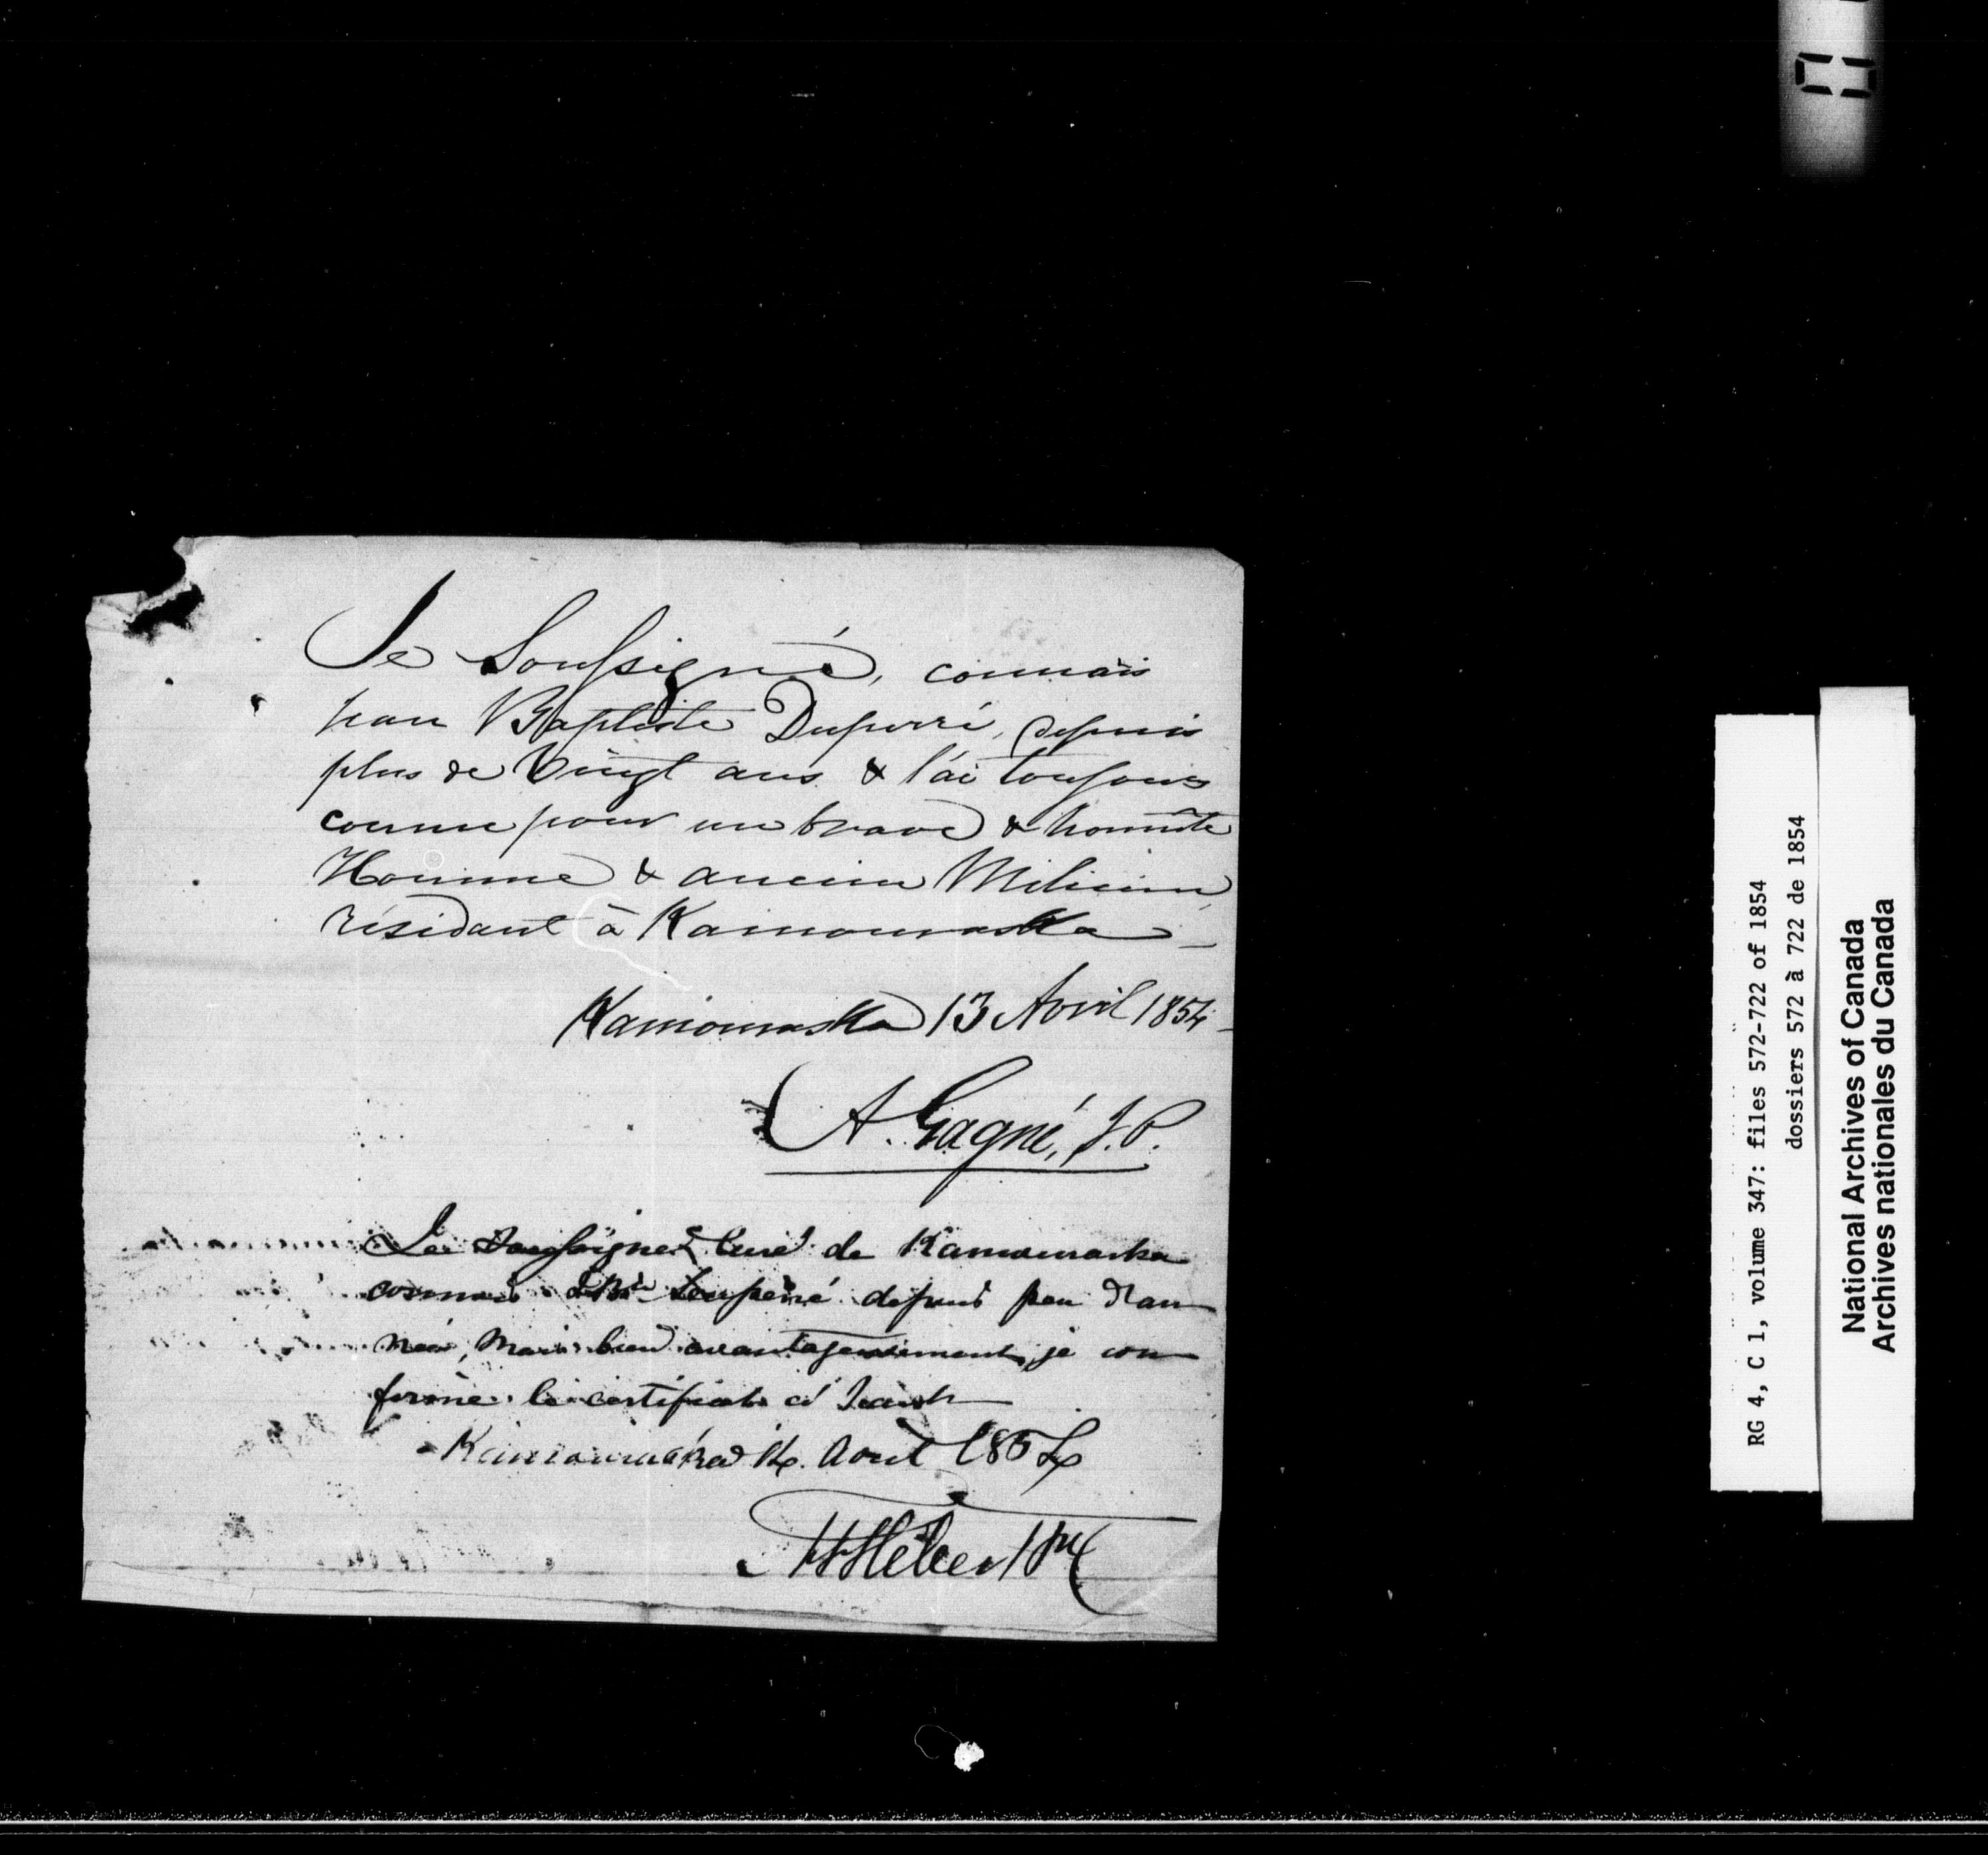 Je Soussigné, connais
Jean Baptiste Duperré, depuis
plus de Vingt ans & l'ai toujours
connu pour un brave & honnête
Homme & ancien Milicien
résidant à Kamouraska –
Kamouraska 13 Avril 1854 –
A. Gagné, J.P.
Le soussigné Curé de Kamouraska
connais J Bte Duperré depuis peu d'an
née, Mais bien avantageusement, je con
firme le certificat ci
Kamouraska Aout 1854
Hébert Ptre
RG 4, C 1, volume 347: files 572-722 of 1854
dossiers 572 à 722 de 1854
National Archives of Canada
Archives nationales du Canada